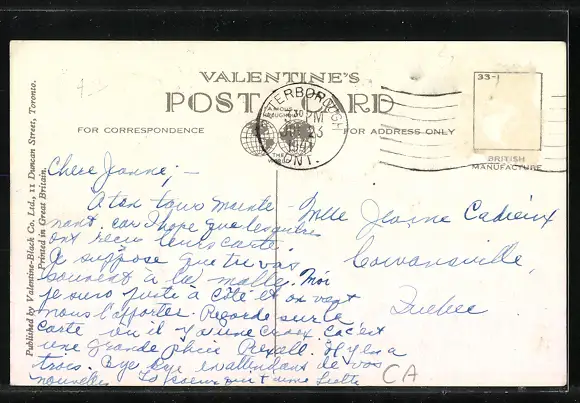 VALENTINE'S
POST CARD
FOR CORRESPONDENCE
FOR ADDRESS ONLY
FAMOUS
THROUGHOUT
THE
WORLD
PETERBOROUGH
30
PM
23
1941
ONT.
33-1
BRITISH
MANUFACTURE
Published by Valentine-Black Co. Ltd., 11 Duncan Street, Toronto.
Printed in Great Britain.
Chere Jeanne; –
A ton tour mainte-
nant. car I hope que les autres
ont recu leurs carte.
Je suppose que tu vas
souvent à la malle. Moi
je suis juste à côté et on vont
nous l'apporter. Regarde sur la
carte ou il y a une croix. Cac'est
une grande Rexall. Il y en a
trois. Bye Bye en attendant de vos
nouvelles. La soeur qui t'aime
Mlle Jeanne Cadieux
Cowansville,
Quebec.
CA